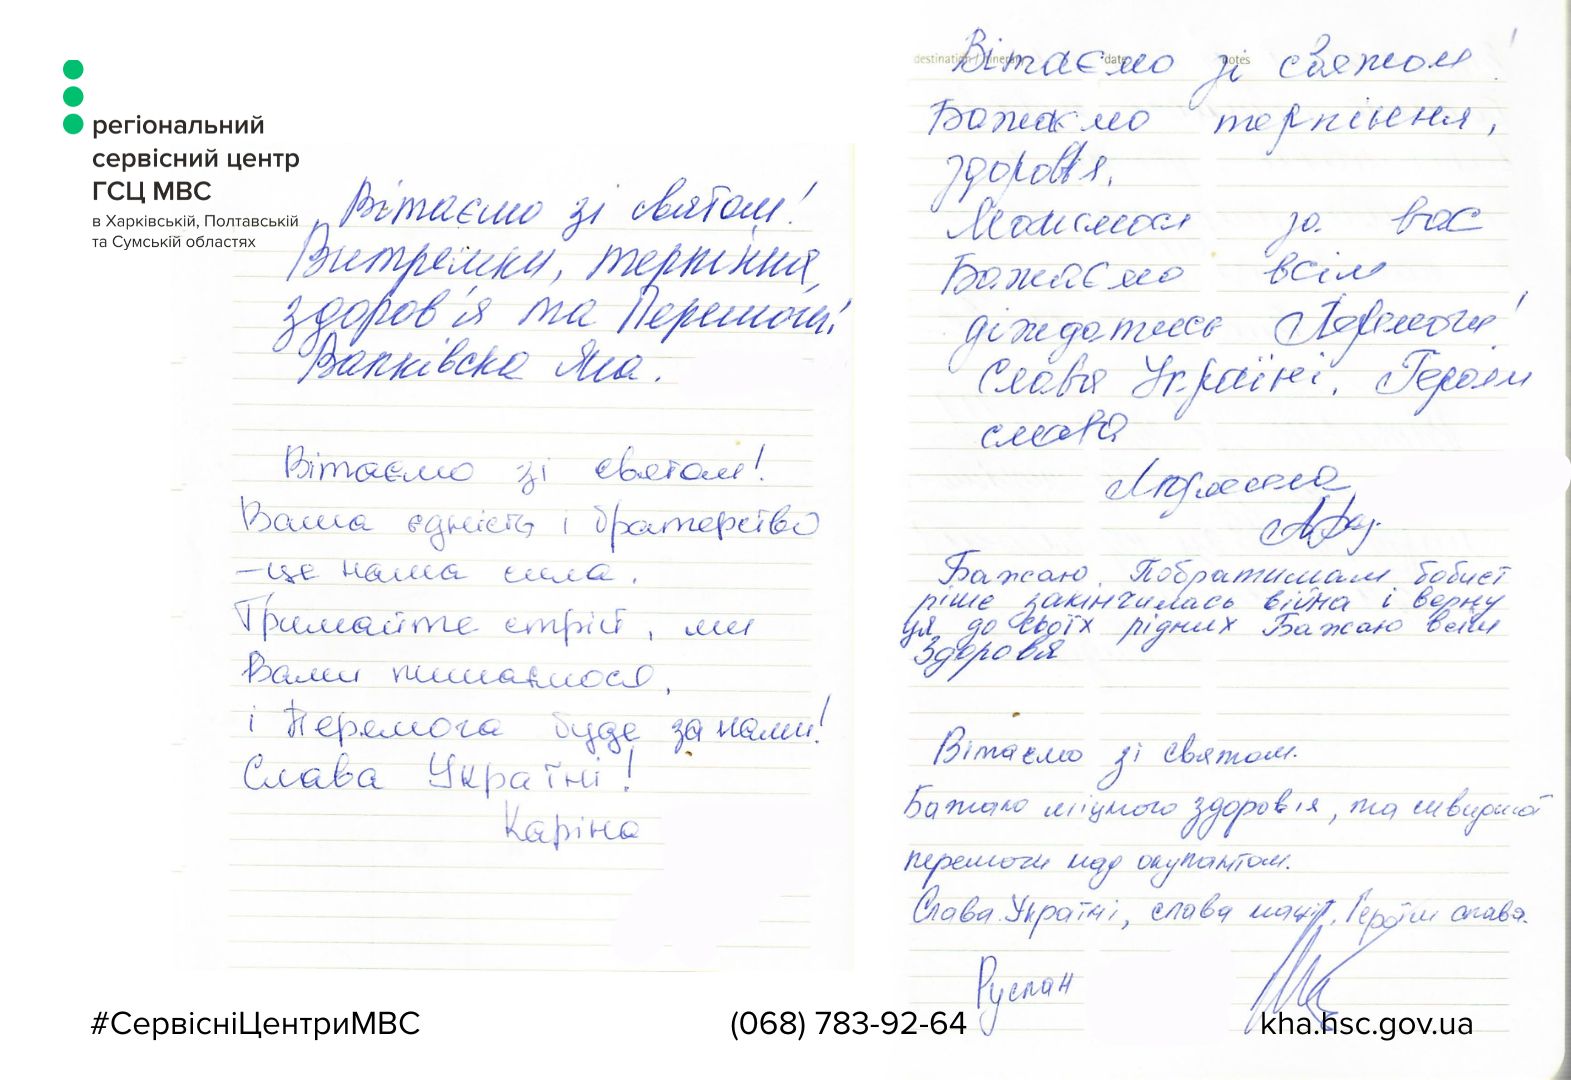 регіональний
сервісний центр
ГСЦ МВС
в Харківській, Полтавській
та Сумській областях
Вітаємо зі святом!
Витримки, терпіння,
здоров'я та Перемоги!
Яна.
Вітаємо зі святом!
Ваша єдність і братерство
– це наша сила.
Тримайте стрій, ми
Вами пишаємося,
і Перемога буде за нами!
Слава Україні!
Каріна
destination / itinerary date notes
Вітаємо зі святом!
Бажаємо терпіння,
здоров'я.
Молимося за вас
Бажаємо всім
діждатись Перемоги!
Слава Україні. Героям
слава
Людмила
Бажаю Побратимам
ріше закінчилась війна і верну
ця до своїх рідних Бажаю всім
Здоровя
Вітаємо зі святом.
Бажаю міцного здоров'я, та швидкої
перемоги над окупантом.
Слава Україні, слава нації, Героїм слава.
Руслан
#СервісніЦентриМВС
(068) 783-92-64
kha.hsc.gov.ua